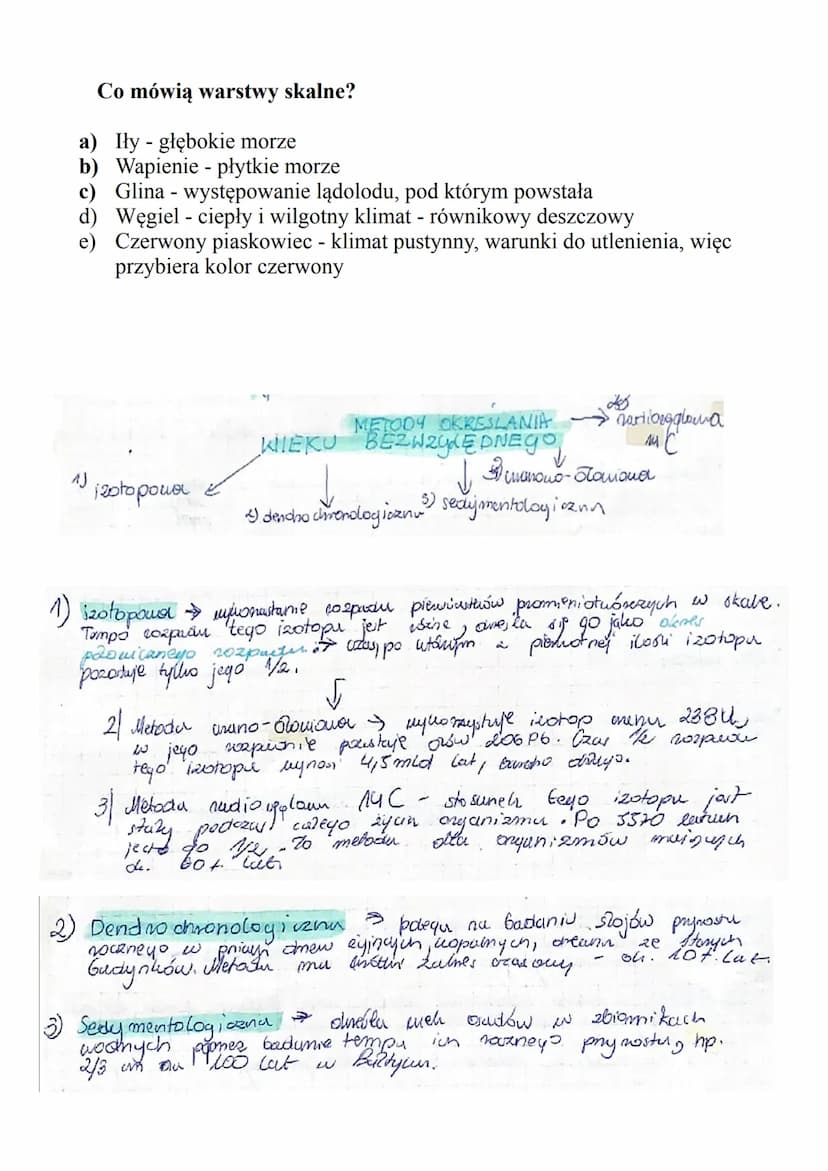 Co mówią warstwy skalne?
a) Iły - głębokie morze
b) Wapienie - płytkie morze
c) Glina - występowanie lądolodu, pod którym powstała
d) Węgiel - ciepły i wilgotny klimat - równikowy deszczowy
e) Czerwony piaskowiec - klimat pustynny, warunki do utlenienia, więc
przybiera kolor czerwony
METODY OKREŚLANIA →
WIEKU BEZWZGLĘDNEGO 14C
1) izotopowa uranowo-ołowiowa
dendrochronologiczna 3) sedymentologiczna
1) izotopowa → wykorzystanie rozpadu pierwiastków promieniotwórczych w skale.
Tempo rozpadu tego izotopu jest określa się go jako okres
połowicznego rozpadu → czas, po którym z pierwotnej ilości izotopu
pozostaje tylko jego 1/2.
2) Metoda urano-ołowiowa → wykorzystuje izotop uranu 238U,
w jego rozpadzie powstaje ołów 206Pb. Czas 1/2 rozpadu
tego izotopu wynosi 4,5 mld lat, bardzo długo.
3) Metoda radiowęglowa 14C - stosunek tego izotopu jest
stały podczas całego życia organizmu. Po 5570 latach
jest go 1/2. To metoda dla organizmów mających
ok. 60 t. lat
2) Dendrochronologiczna → polega na badaniu słojów przyrostu
rocznego w pniach drzew żyjących, kopalnych, drewna ze starych
budynków. Metoda ma zakres czasowy - ok. 10 t. lat.
3) Sedymentologiczna → określa wiek osadów w zbiornikach
wodnych poprzez badanie tempa ich rocznego przyrostu, np.
2/3 cm na 1100 lat w Bałtyku.